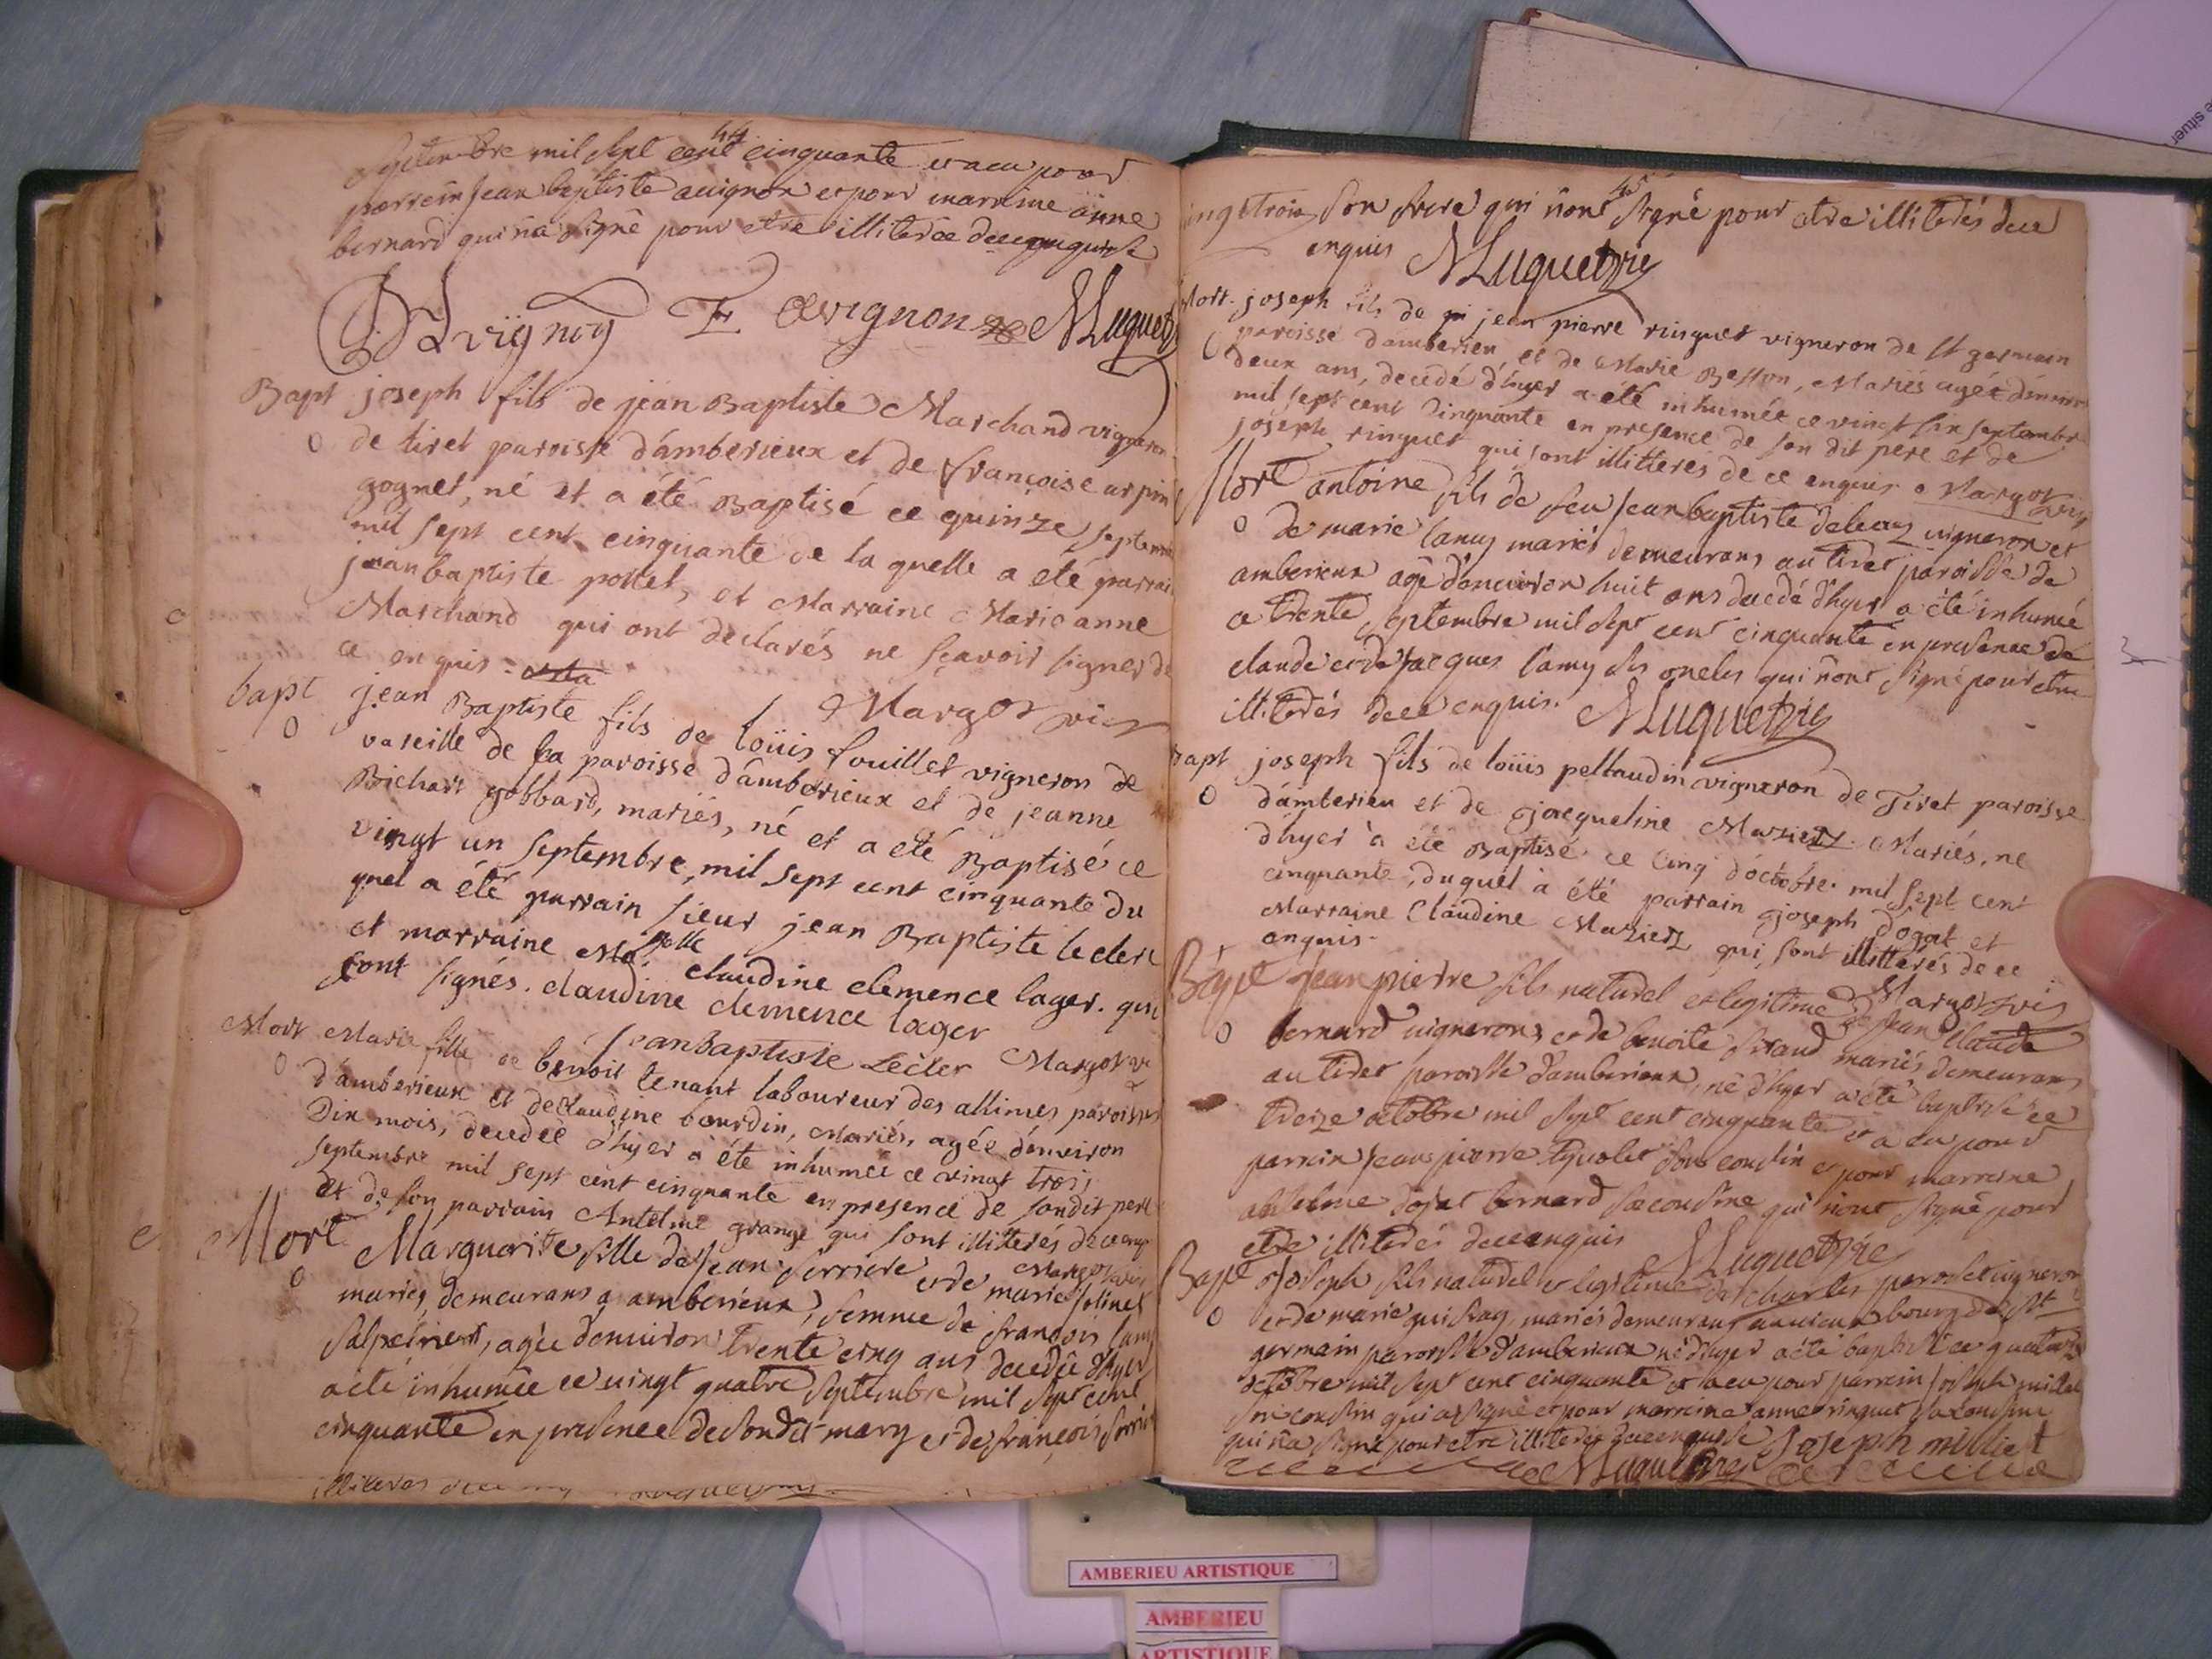 44
septembre mil sept cent cinquante et a eu pour
parrein jean baptiste avignon et pour marreine anne
bernard qui n'a signé pour etre illiterée de ce enquise
Avignon F avignon Muguet
Bapt joseph fils de jean Baptiste Marchand vigneron
de tiret paroisse d'amberieux et de françoise arpin
gognet, né et a été Baptisé ce quinze septembre
mil sept cent cinquante de la quelle a été parrain
jean baptiste pottet, et Marraine Marie anne
Marchand qui ont declarés ne sçavoir signer de
ce enquis.
Margot vic
bapt jean Baptiste fils de loüis fouillet vigneron de
vareille de la paroisse d'amberieux et de jeanne
Bichart gobbard, mariés, né et a été Baptisé ce
vingt un septembre, mil sept cent cinquante du
quel a été parrain sieur jean Baptiste leclerc
et marraine Ma.elle claudine clemence lager. qui
sont signés. claudine clemence lager
jean baptiste Lecler Margot vic
Mort Marie fille de benoit tenant laboureur des allimes paroisse
d'amberieux et de claudine bourdin, Mariés, agée d'environ
Dix mois, decedée d'hyer a été inhumée ce vingt trois
septembre mil sept cent cinquante en presence de son dit pere
et de son parrain Antelme grange qui sont illitterés de ce enquis
Margot vic
Mort Marguerite fille de jean serriere et de marie solinet
mariés, demeurans a amberieux, femme de françois lamy
salpetrient, agée d'environ trente cinq ans decedée d'hyer
a été inhumée ce vingt quatre septembre mil sept cent
cinquante en presence de son dit mary et de françois
illiteres
son frere qui n'ont signé pour etre illiterés de ce
enquis Muguet vic
Mort. joseph fils de jean pierre ringuet vigneron de st germain
paroisse d'amberieu, et de Marie Besson, Mariés agée d'environ
deux ans, decedé d'hyer a été inhumée ce vingt six septembre
mil sept cent cinquante en presence de son dit pere et de
joseph ringuet qui sont illitterés de ce enquis. Margot vic
Mort antoine fils de feu jean baptiste vigneron et
de marie lamy mariés demeurans au tiret paroisse de
amberieux agé d'environ huit ans decedé d'hyer a été inhumé
ce trente septembre mil sept cent cinquante en presence de
claude et de jacques lamy ses oncles qui n'ont signé pour etre
illiterés de ce enquis. Muguet vic
Bapt joseph fils de loüis peltaudin vigneron de Tiret paroisse
d'amberieu et de jacqueline Maziez. Mariés, né
d'hyer a été Baptisé ce cinq d'octobre mil sept cent
cinquante, duquel a été parrain joseph dogat et
Marraine Claudine Maziez qui sont illitterés de ce
enquis. Margot vic
Bapt jean pierre fils naturel et legitime de jean Claude
bernard vigneron, et de benoite mariés demeurans
au tiret paroisse d'amberieux, né d'hyer a été baptisé ce
treize octobre mil sept cent cinquante et a eu pour
parrein jean pierre son cousin et pour marreine
bernard sa cousine qui n'ont signé pour
etre illiterés de ce enquis Muguet vic
Bapt joseph fils naturel et legitime de charles vigneron
et de marie mariés demeurans au vieux bourg de st
germain paroisse d'amberieux né d'hyer a été baptisé ce quatorze
octobre mil sept cent cinquante et a eu pour parrein joseph millet
son cousin qui a signé et pour marreine anne ringuet sa cousine
qui n'a signé pour etre illiterée de ce enquise Joseph milliet
Muguet vic
AMBERIEU ARTISTIQUE
AMBERIEU
ARTISTIQUE